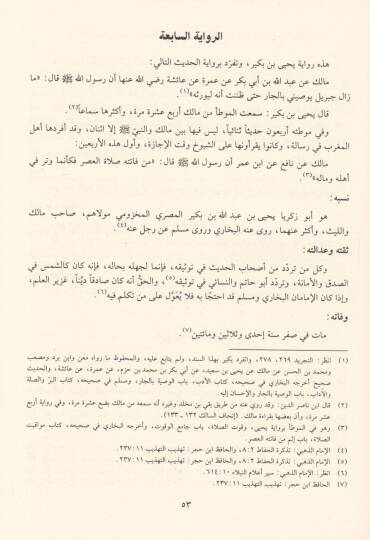 الرواية السابعة
هذه رواية يحيى بن بكير، وتفرّد برواية الحديث التالي:
مالك عن عبد الله بن أبي بكر عن عمرة عن عائشة رضي الله عنها أن رسول الله ﷺ قال: «ما
زال جبريل يوصيني بالجار حتى ظننت أنه ليورثه»(١).
قال يحيى بن بكير: سمعت الموطأ من مالك أربع عشرة مرة، وأكثرها سماعاً(٢).
وفي موطئه أربعون حديثاً ثنائياً، ليس فيها بين مالك والنبيّ ﷺ إلا اثنان، وقد أفردها أهل
المغرب في رسالة، وكانوا يقرأونها على الشيوخ وقت الإجازة، وأول هذه الأربعين:
مالك عن نافع عن ابن عمر أن رسول الله ﷺ قال: «من فاتته صلاة العصر فكأنما وتر في
أهله وماله»(٣).
نسبه:
هو أبو زكريا يحيى بن عبد الله بن بكير المصري المخزومي مولاهم، صاحب مالك
والليث، وأكثر عنهما، روى عنه البخاري وروى مسلم عن رجل عنه(٤).
ثقته وعدالته:
وكل من تردّد من أصحاب الحديث في توثيقه، فإنما لجهله بحاله، فإنه كان كالشمس في
الصدق والأمانة، وتردّد أبو حاتم والنسائي في توثيقه(٥)، والحقُّ أنه كان صادقاً ديّناً، غزير العلم،
وإذا كان الإمامان البخاري ومسلم قد احتجّا به فلا يُعوَّل على من تكلم فيه(٦).
وفاته:
مات في صفر سنة إحدى وثلاثين ومائتين(٧).
(١) انظر: التجريد ٢٦٩، ٢٧٨، وانفرد بكير بهذا السند، ولم يتابع عليه، والمحفوظ ما رواه معن وابن برد ومصعب
ومحمد بن الحسن عن مالك عن يحيى بن سعيد، عن أبي بكر بن محمد بن حزم، عن عمرة، عن عائشة، والحديث
صحيح أخرجه البخاري في صحيحه، كتاب الأدب، باب الوصية بالجار، ومسلم في صحيحه، كتاب البرّ والصلة
والآداب، باب الوصية بالجار والإحسان إليه.
(٢) قال ابن ناصر الدين: وقد روي عنه من طريق بقي بن مخلد وغيره، أنه سمعه من مالك بضع عشرة مرة، وفي رواية أربع
عشرة مرة، وأن بعضها بقراءة مالك. (إتحاف السالك ١٣٢ ـ ١٣٣).
(٣) وهو في الموطأ برواية يحيى، وقوت الصلاة، باب جامع الوقوت، وأخرجه البخاري في صحيحه، كتاب مواقيت
الصلاة، باب إثم من فاتته العصر.
(٤) الإمام الذهبي: تذكرة الحفاظ ٨:٢، والحافظ ابن حجر: تهذيب التهذيب ٢٣٧:١١.
(٥) الإمام الذهبي: تذكرة الحفاظ ٨:٢، والحافظ ابن حجر: تهذيب التهذيب ٢٣٧:١١.
(٦) انظر: الإمام الذهبي: سير أعلام النبلاء ٦١٤:١٠.
(٧) الحافظ ابن حجر: تهذيب التهذيب ٢٣٧:١١.
٥٣